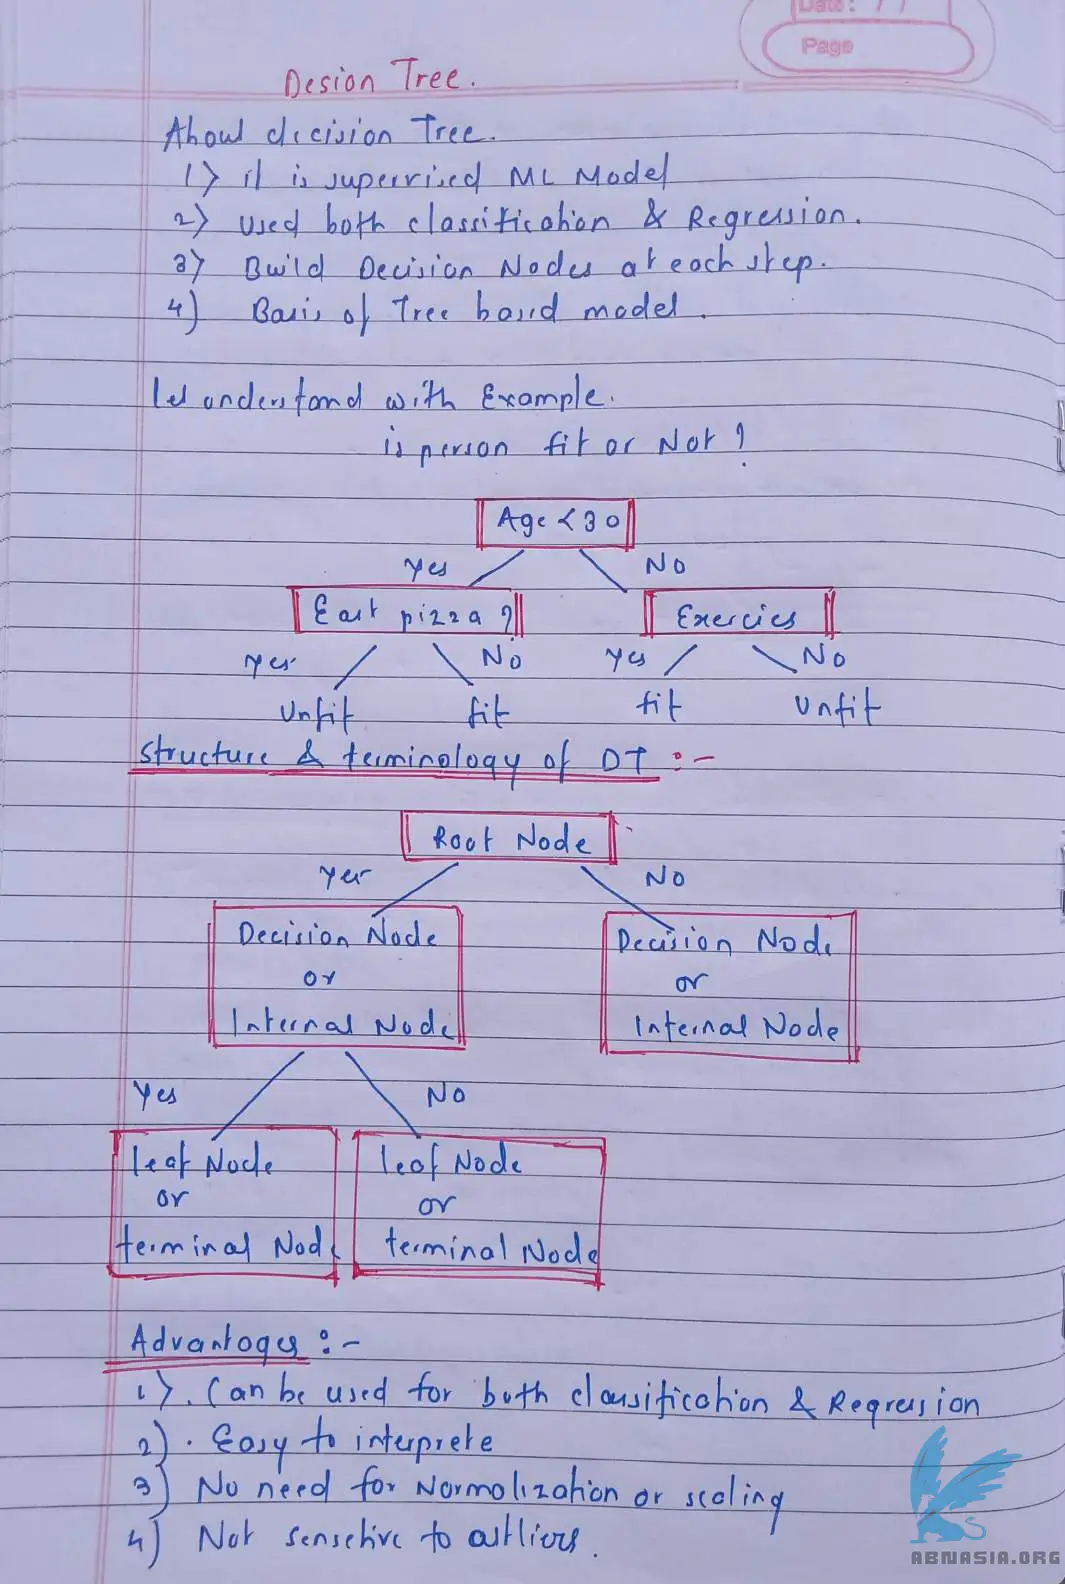 Date: / /
Page
Desion Tree.
About decision Tree.
1) it is supervised ML Model
2) Used both classification & Regression.
3) Build Decision Nodes at each step.
4) Basis of Tree based model.
let understand with Example.
is person fit or Not ?
Age < 30
Yes No
Eart pizza ? Exercies
Yes No Yes No
Unfit fit fit Unfit
Structure & terminology of DT :-
Root Node
Yes No
Decision Node Decision Node
or or
Internal Node Internal Node
Yes No
leaf Node leaf Node
or or
terminal Node terminal Node
Advantages :-
1) . Can be used for both classification & Regression
2) . Easy to interprete
3) No need for Normalization or scaling
4) Not sensetive to outliers.
ABNASIA.ORG